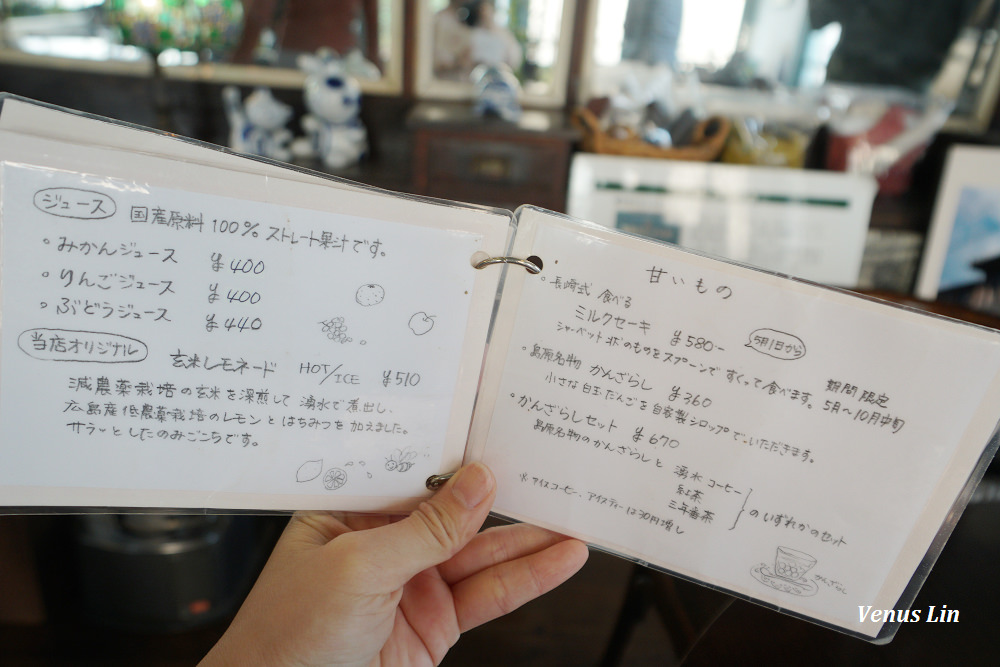 ジュース 国産原料 100% ストレート果汁です。
。みかんジュース ¥400
。りんごジュース ¥400
。ぶどうジュース ¥440
当店オリジナル 玄米レモネード HOT/ICE ¥510
減農薬栽培の玄米を深煎して 湧水で煮出し、
広島産低農薬栽培のレモンとはちみつを加えました。
サラッとしたのみごこちです。
甘いもの
。長崎式 食べる
ミルクセーキ ¥580- 5月1日から
シャーベット状のものをスプーンですくって食べます。
期間限定
5月〜10月中旬
。島原名物 かんざらし ¥360
小さな白玉だんごを自家製シロップでいただきます。
。かんざらしセット ¥670
島原名物のかんざらしと
湧水コーヒー
紅茶
三年番茶
のいずれかのセット
※アイスコーヒー、アイスティーは30円増し
かんざらし
Venus Lin